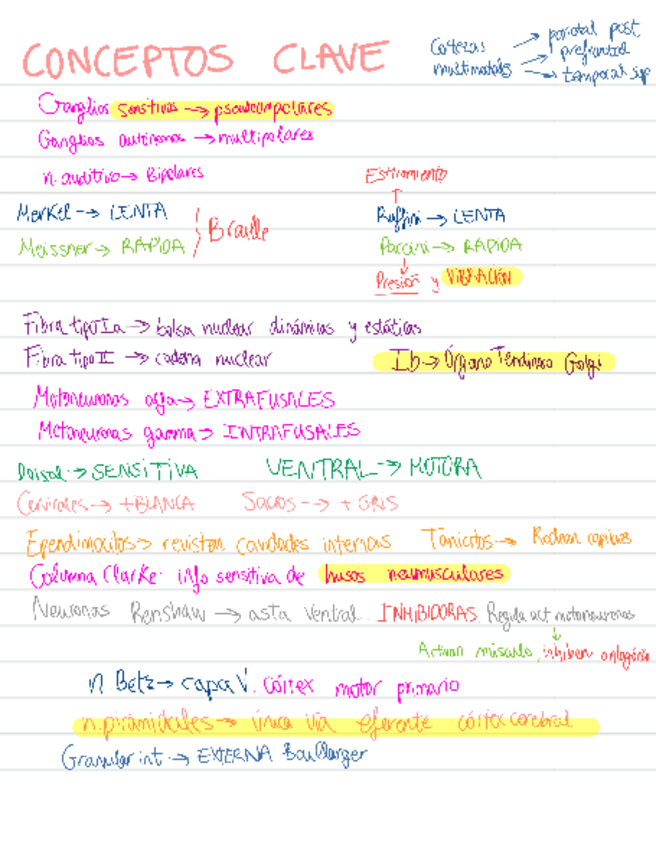 CONCEPTOS CLAVE
Cortezas multimodales → parietal post
→ prefrontal
→ temporal sup
Ganglios sensitivos → pseudounipolares
Ganglios autónomos → multipolares
n. auditivo → Bipolares
Estiramiento
↑
Merkel → LENTA
Meissner → RÁPIDA
} Braille
Ruffini → LENTA
Paccini → RÁPIDA
↓
Presión y VIBRACIÓN
Fibra tipo Ia → bolsa nuclear dinámicas y estáticas
Fibra tipo II → cadena nuclear
Ib → Órgano Tendinoso Golgi
Motoneuronas alfa → EXTRAFUSALES
Motoneuronas gamma → INTRAFUSALES
Dorsal → SENSITIVA VENTRAL → MOTORA
Cervicales → + BLANCA Sacros → + GRIS
Ependimocitos → revisten cavidades internas Tanicitos → Rodean capilares
Columna Clarke: info sensitiva de husos neumusculares
Neuronas Renshaw → asta ventral INHIBIDORAS. Regula act motoneuronas
↓
Activan músculo, inhiben antagonis
n Betz → capa V. córtex motor primario
n. piramidales → única vía eferente córtex cerebral
Granular int → EXTERNA Baillarger